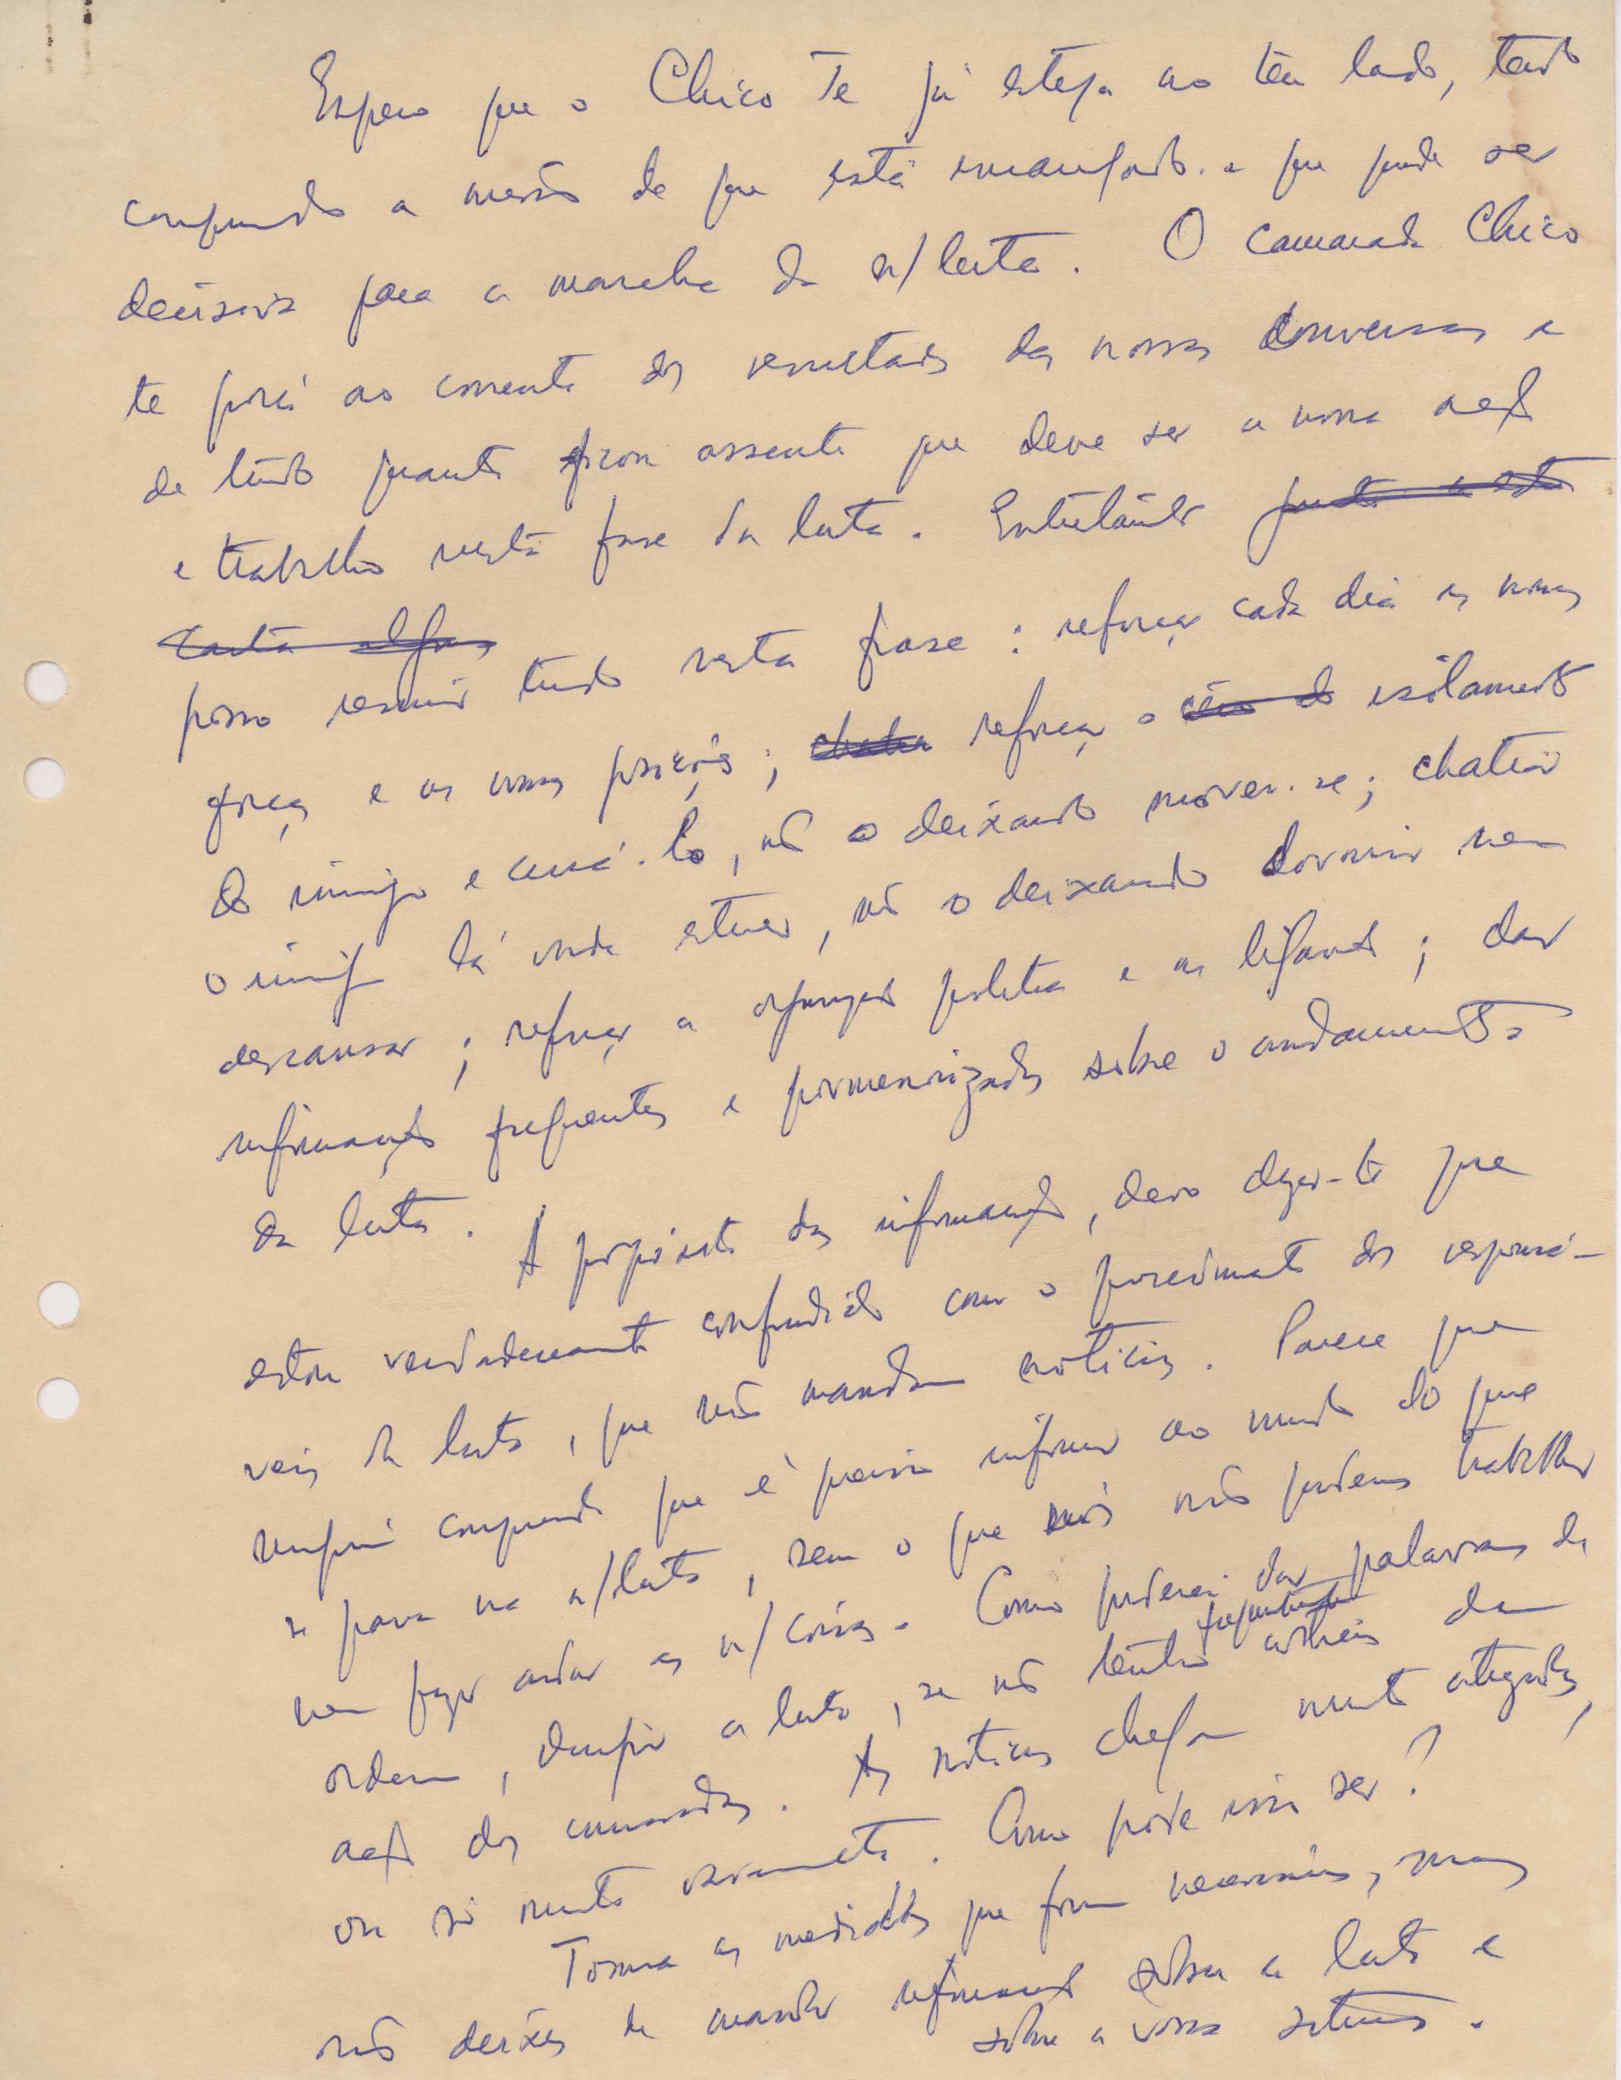 Espero que o Chico Te já esteja ao teu lado, tendo
cumprido a missão de que está encarregado e que pode ser
decisiva para a marcha da n/luta. O camarada Chico
te porá ao corrente dos resultados das nossas conversas e
de tudo quanto ficou assente que deve ser a nossa acção
e trabalho nesta fase da luta. Entretanto
posso resumir tudo nesta frase: reforçar cada dia as nossas
forças e as nossas posições; reforçar o isolamento
do inimigo e cercá-lo, não o deixando mover-se; chatear
o inimigo lá onde estiver, não o deixando dormir nem
descansar; reforçar a organização política e as ligações; dar
informações frequentes e pormenorizadas sobre o andamento
da luta. A propósito das informações, devo dizer-te que
estou verdadeiramente confundido com o procedimento dos responsá-
veis da luta, que não mandam notícias. Parece que
ninguém compreende que é preciso informar ao mundo do que
se passa na n/luta, sem o que nós não podemos trabalhar
nem fazer andar as n/coisas. Como poderei dar palavras de
ordem, dirigir a luta, se não tenho frequentemente notícias da
acção dos camaradas. As notícias chegam muito atrasadas,
ou só muito raramente. Como pode isso ser?
Toma as medidas que forem necessárias, mas
não deixes de mandar informações sobre a luta e
sobre a vossa situação.